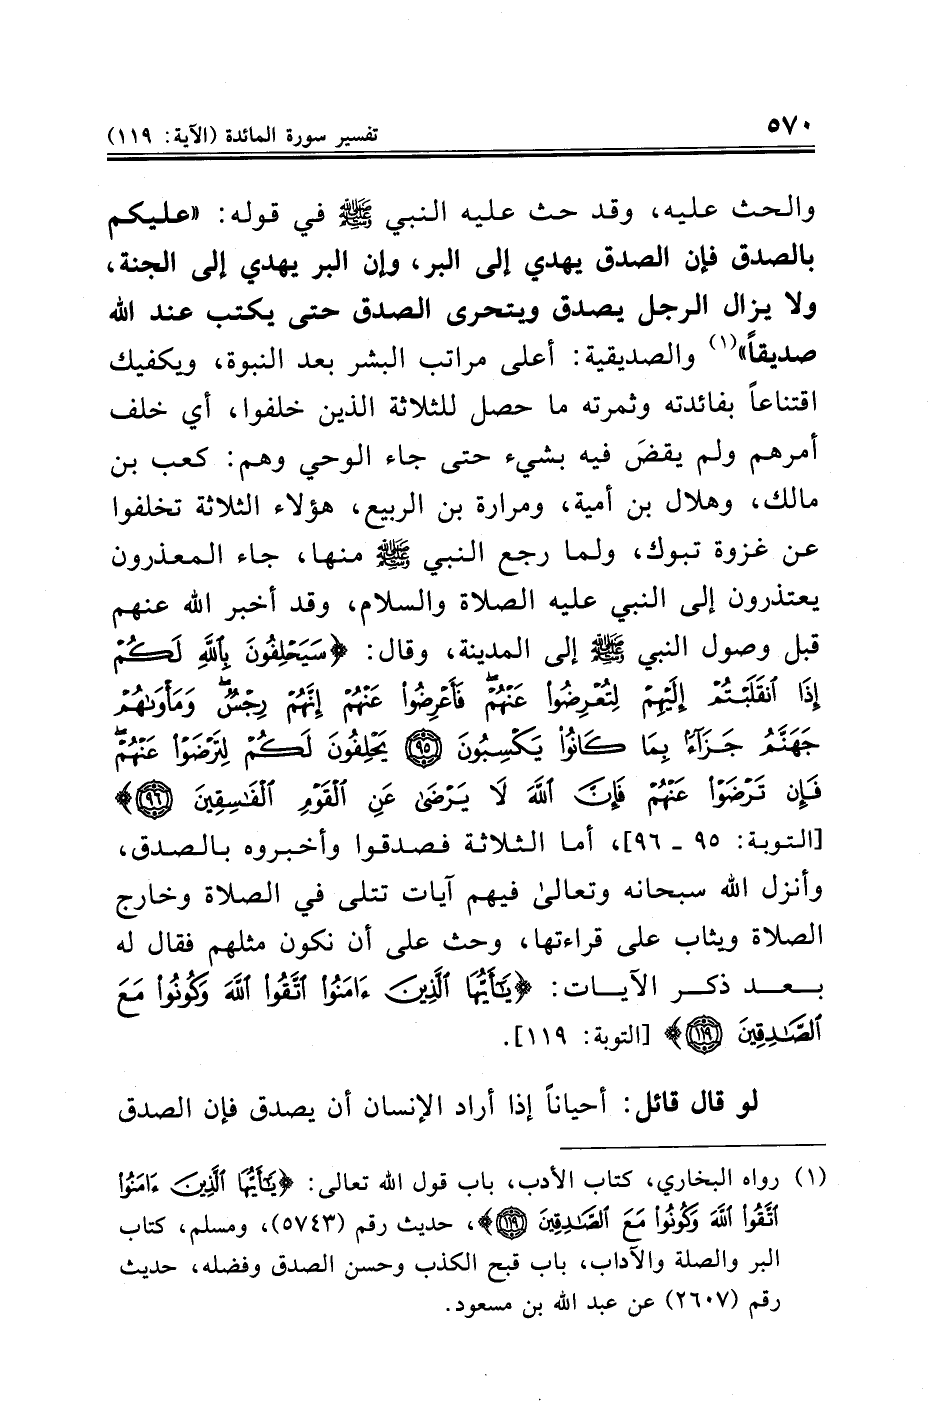 ٥٧٠
تفسير سورة المائدة (الآية: ١١٩)
والحث عليه، وقد حث عليه النبي ﷺ في قوله: «عليكم
بالصدق فإن الصدق يهدي إلى البر، وإن البر يهدي إلى الجنة،
ولا يزال الرجل يصدق ويتحرى الصدق حتى يكتب عند الله
صديقاً»(١) والصديقية: أعلى مراتب البشر بعد النبوة، ويكفيك
اقتناعاً بفائدته وثمرته ما حصل للثلاثة الذين خلفوا، أي خلف
أمرهم ولم يقضَ فيه بشيء حتى جاء الوحي وهم: كعب بن
مالك، وهلال بن أمية، ومرارة بن الربيع، هؤلاء الثلاثة تخلفوا
عن غزوة تبوك، ولما رجع النبي ﷺ منها، جاء المعذرون
يعتذرون إلى النبي عليه الصلاة والسلام، وقد أخبر الله عنهم
قبل وصول النبي ﷺ إلى المدينة، وقال: ﴿سَيَحْلِفُونَ بِٱللَّهِ لَكُمْ
إِذَا ٱنقَلَبْتُمْ إِلَيْهِمْ لِتُعْرِضُوا۟ عَنْهُمْ ۖ فَأَعْرِضُوا۟ عَنْهُمْ إِنَّهُمْ رِجْسٌ ۖ وَمَأْوَىٰهُمْ
جَهَنَّمُ جَزَآءًۢ بِمَا كَانُوا۟ يَكْسِبُونَ ٩٥ يَحْلِفُونَ لَكُمْ لِتَرْضَوْا۟ عَنْهُمْ ۖ
فَإِن تَرْضَوْا۟ عَنْهُمْ فَإِنَّ ٱللَّهَ لَا يَرْضَىٰ عَنِ ٱلْقَوْمِ ٱلْفَٰسِقِينَ ٩٦﴾
[التوبة: ٩٥ ـ ٩٦]، أما الثلاثة فصدقوا وأخبروه بالصدق،
وأنزل الله سبحانه وتعالىٰ فيهم آيات تتلى في الصلاة وخارج
الصلاة ويثاب على قراءتها، وحث على أن نكون مثلهم فقال له
بعد ذكر الآيات: ﴿يَٰٓأَيُّهَا ٱلَّذِينَ ءَامَنُوا۟ ٱتَّقُوا۟ ٱللَّهَ وَكُونُوا۟ مَعَ
ٱلصَّٰدِقِينَ ١١٩﴾ [التوبة: ١١٩].
لو قال قائل: أحياناً إذا أراد الإنسان أن يصدق فإن الصدق
(١) رواه البخاري، كتاب الأدب، باب قول الله تعالى: ﴿يَٰٓأَيُّهَا ٱلَّذِينَ ءَامَنُوا۟
ٱتَّقُوا۟ ٱللَّهَ وَكُونُوا۟ مَعَ ٱلصَّٰدِقِينَ ١١٩﴾، حديث رقم (٥٧٤٣)، ومسلم، كتاب
البر والصلة والآداب، باب قبح الكذب وحسن الصدق وفضله، حديث
رقم (٢٦٠٧) عن عبد الله بن مسعود.